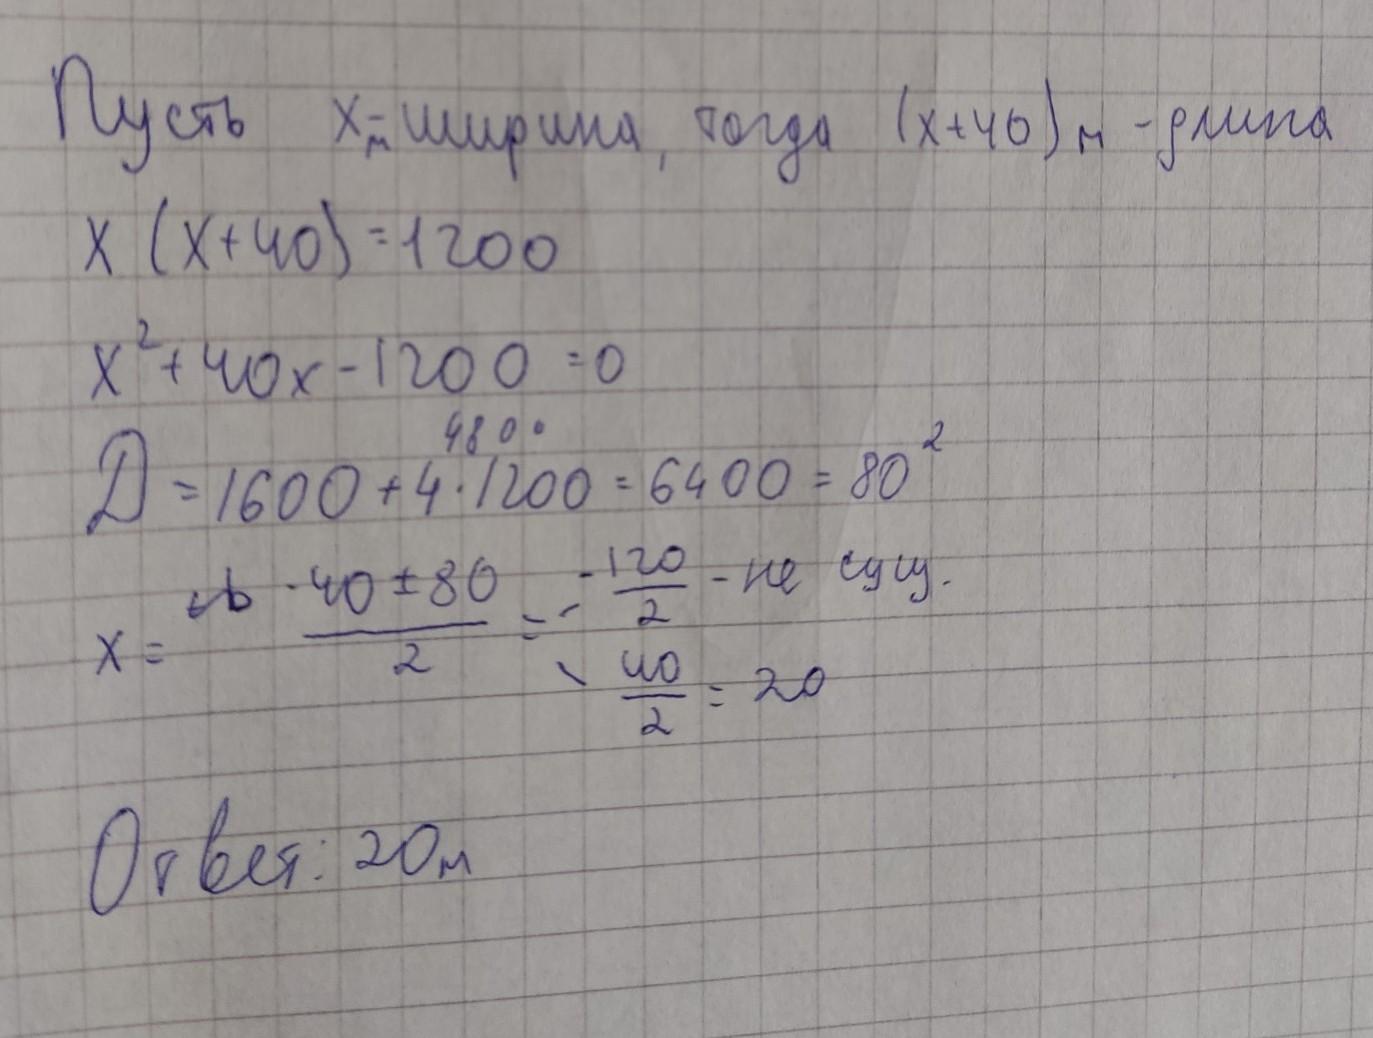 Пусть x м - ширина, тогда (x+40) м - длина
x (x+40) = 1200
x² + 40x - 1200 = 0
4800
D = 1600 + 4 · 1200 = 6400 = 80²
x = (-40 ± 80)/2 = -120/2 - не сущ.
40/2 = 20
Ответ: 20 м